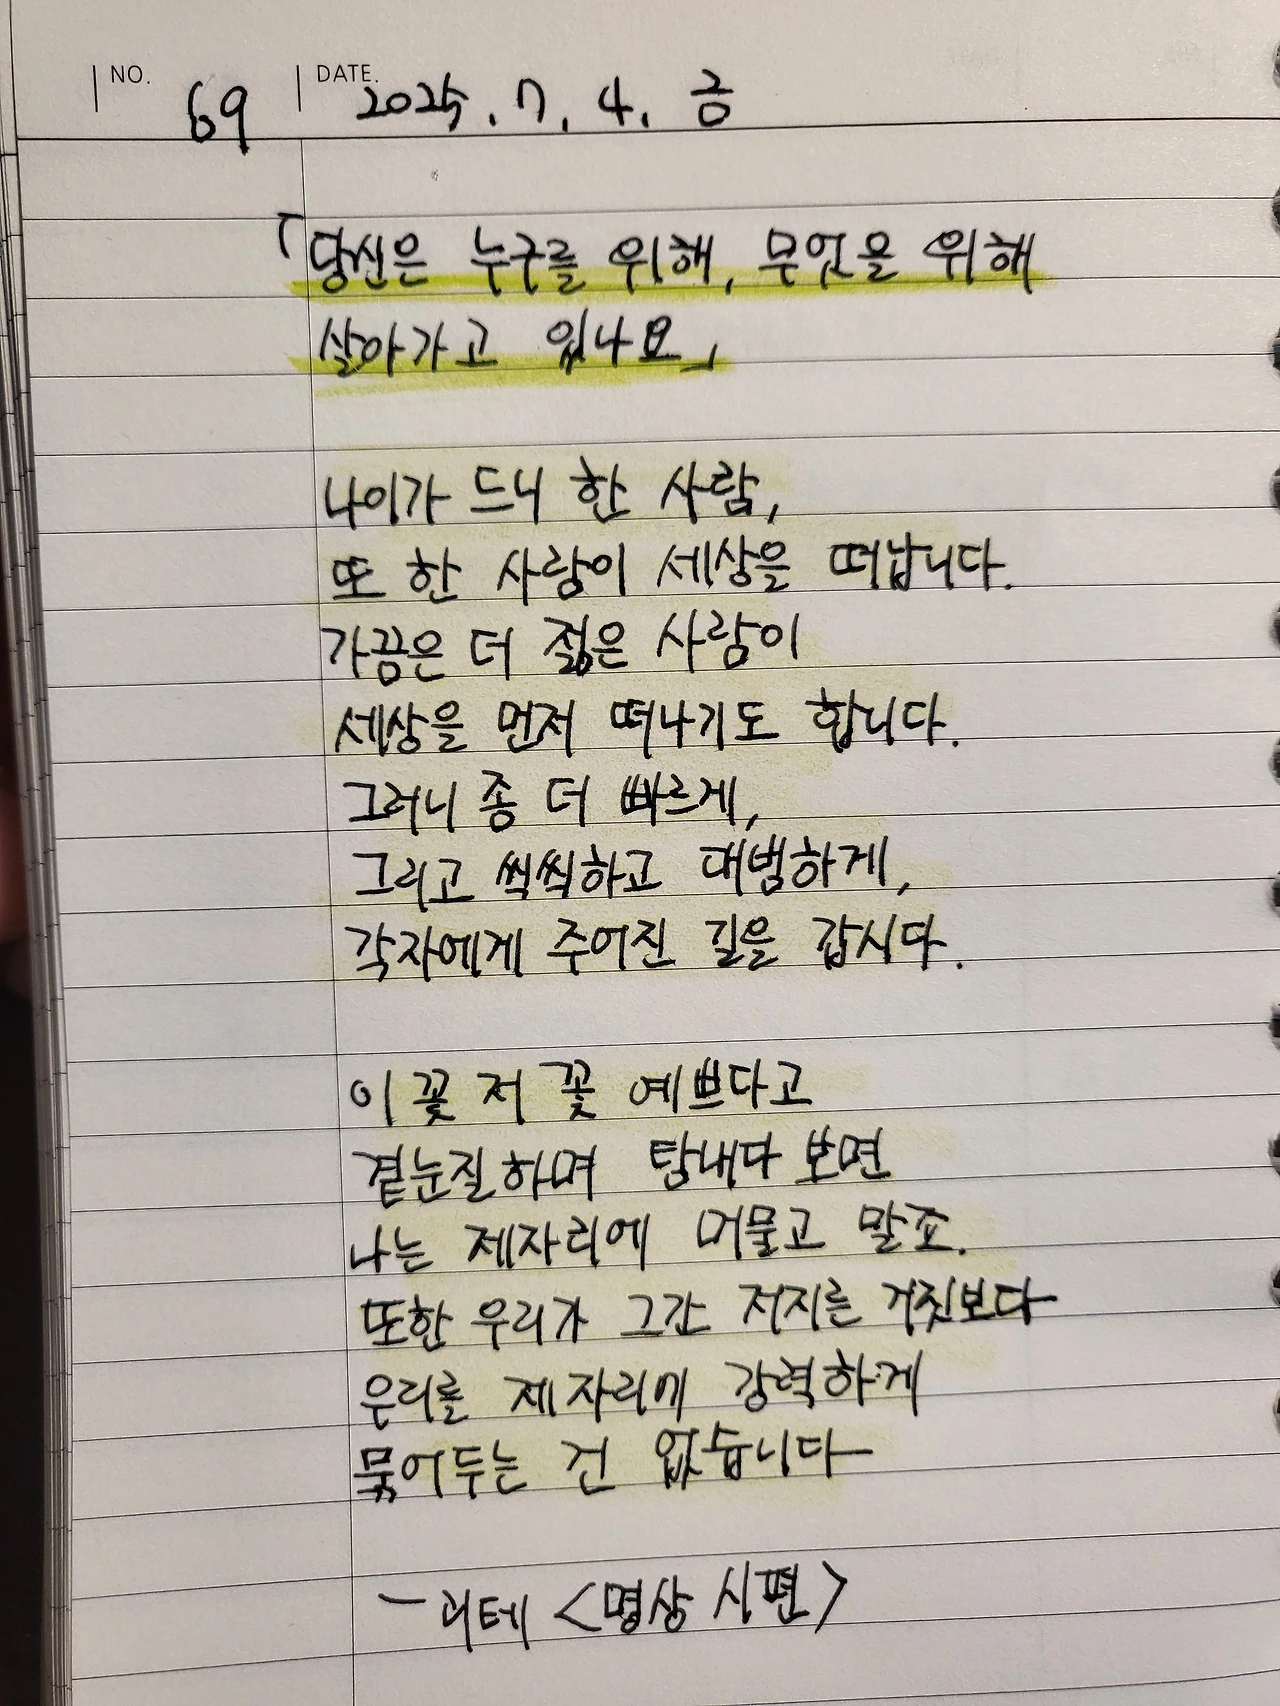 NO. 69 DATE. 2025. 7. 4. 금
「당신은 누구를 위해, 무엇을 위해
살아가고 있나요」
나이가 드니 한 사람,
또 한 사람이 세상을 떠납니다.
가끔은 더 젊은 사람이
세상을 먼저 떠나기도 합니다.
그러니 좀 더 빠르게,
그리고 씩씩하고 대범하게,
각자에게 주어진 길을 갑시다.
이 꽃 저 꽃 예쁘다고
곁눈질하며 탐내다 보면
나는 제자리에 머물고 말죠.
또한 우리가 그간 저지른 거짓보다
우리를 제자리에 강력하게
묶어두는 건 없습니다
- 괴테 <명상 시편>